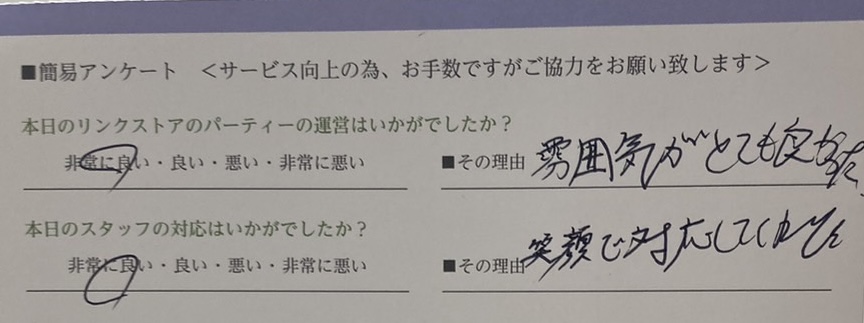 ■簡易アンケート ＜サービス向上の為、お手数ですがご協力をお願い致します＞
本日のリンクストアのパーティーの運営はいかがでしたか？
非常に良い・良い・悪い・非常に悪い ■その理由 雰囲気がとても良かった
本日のスタッフの対応はいかがでしたか？
非常に良い・良い・悪い・非常に悪い ■その理由 笑顔で対応してくれた